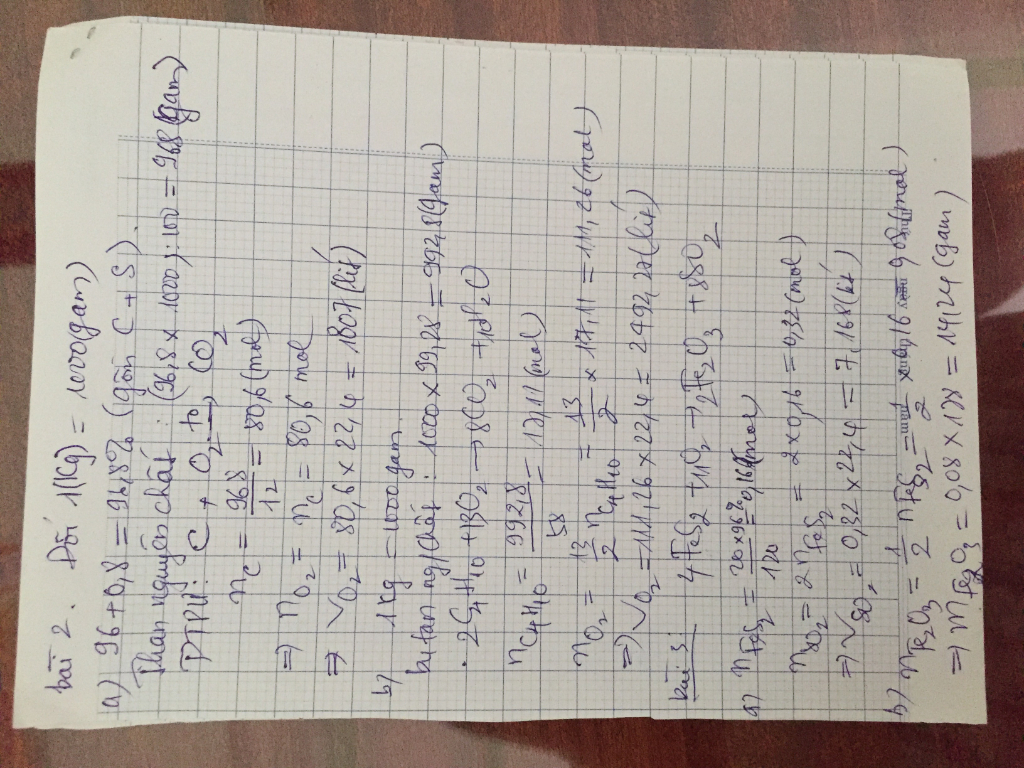 bài 2. Đổi 1(Kg) = 1000gam)
a) 96 + 0,8 = 96,8% (gồm C + S).
Than nguyên chất : (96,8 x 1000) : 100 = 968 (gam)
PTPU: C + O2 to→ CO2
nC = 968/12 = 80,6 (mol)
=> nO2 = nC = 80,6 mol
=> VO2 = 80,6 x 22,4 = 1807 (lít)
b) 1Kg = 1000 gam.
butan ng/chất : 1000 x 99,28 = 992,8 (gam)
. 2C4H10 + 13O2 → 8CO2 + 10H2O
nC4H10 = 992,8/58 = 17,11 (mol)
nO2 = 13/2 nC4H10 = 13/2 x 17,11 = 111,26 (mol)
=> VO2 = 111,26 x 22,4 = 2492,27 (lít)
bài 3: 4FeS2 + 11O2 → 2Fe2O3 + 8SO2
a) nFeS2 = 20 x 96%/120 = 0,16 (mol)
nSO2 = 2nFeS2 = 2 x 0,16 = 0,32 (mol)
=> VSO2 = 0,32 x 22,4 = 7,168 (lít)
b) nFe2O3 = 1/2 nFeS2 = 1/2 x 0,16 = 0,08 (mol)
=> mFe2O3 = 0,08 x 178 = 14,24 (gam)